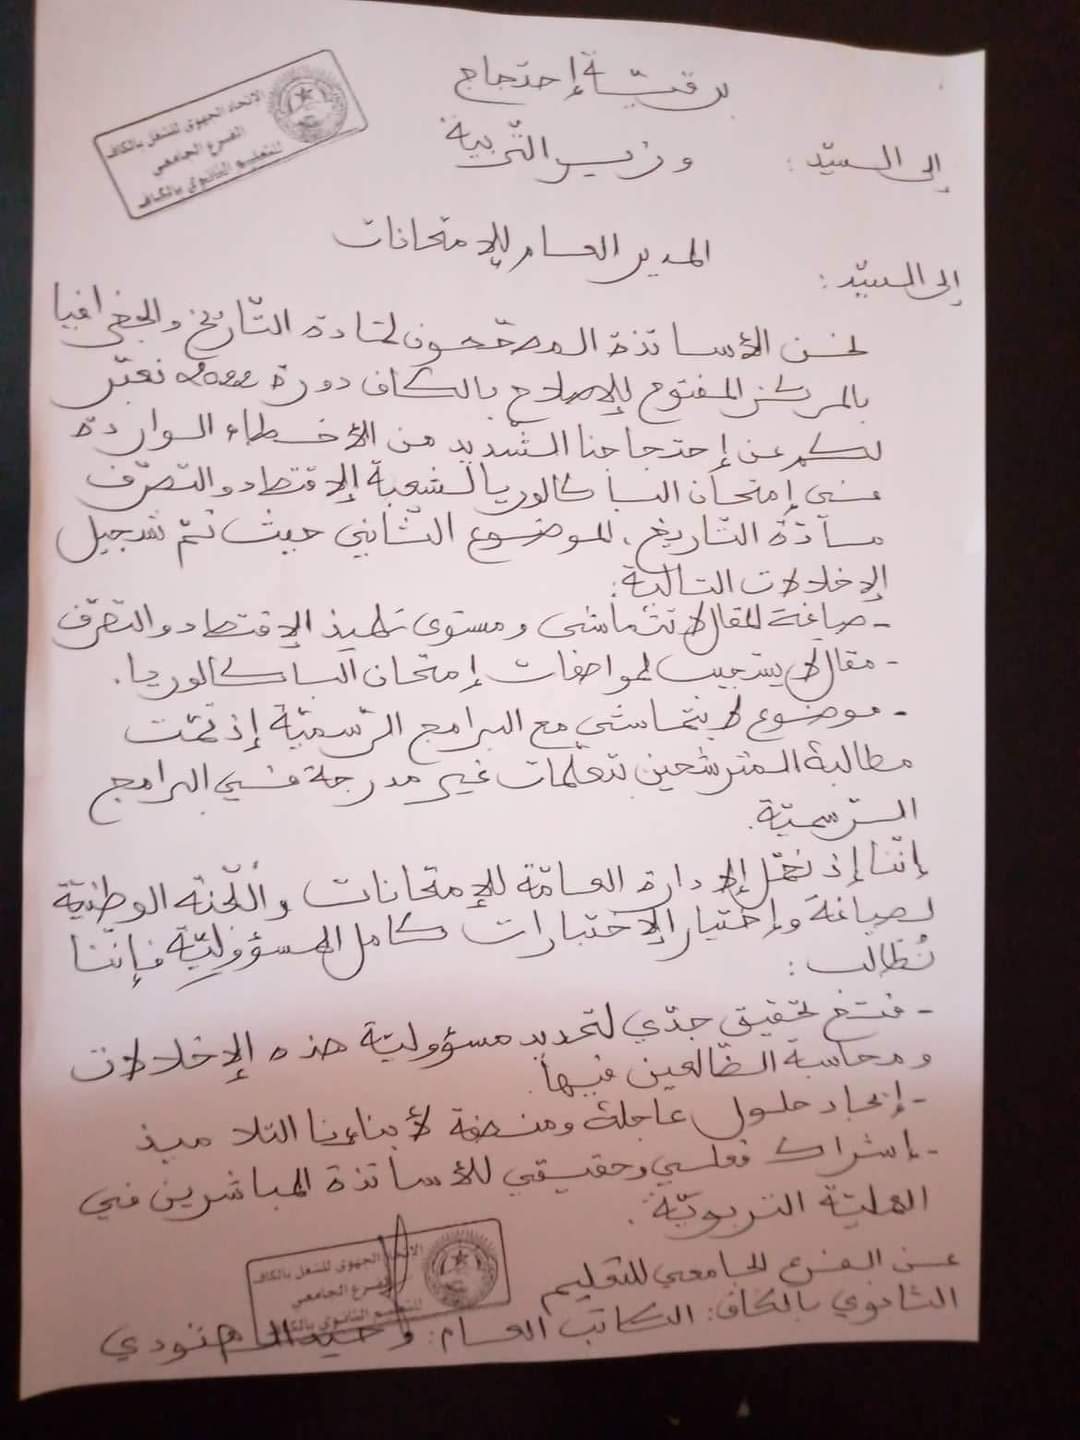 برقيّة إحتجاج
الاتحاد الجهوي للشغل بالكاف
الفرع الجامعي
للتعليم الثانوي بالكاف
إلى السيّد : وزير التّربية
إلى السيّد : المدير العام للإمتحانات
نحن الأساتذة المصحّحون لمادة التّاريخ والجغرافيا
بالمركز المفتوح للإصلاح بالكاف دورة 2022 نعبّر
لكم عن إحتجاجنا الشّديد من الأخطاء الواردة
في إمتحان الباكالوريا لشعبة الإقتصاد والتصرّف
مادّة التّاريخ، الموضوع الثّاني حيث تمّ تسجيل
الإخلالات التالية:
- صياغة المقال لا تتماشى ومستوى تلميذ الإقتصاد والتصرّف
- مقال لا يستجيب لمواصفات إمتحان الباكالوريا.
- موضوع لا يتماشى مع البرامج الرّسميّة إذ تمّت
مطالبة المترشحين بتعلّمات غير مدرجة في البرامج
الرّسميّة.
إنّنا إذ نحمّل الإدارة العامّة للإمتحانات واللّجنة الوطنيّة
لصياغة وإختيار الإختبارات كامل المسؤوليّة فإنّنا
نُطالب :
- فتح تحقيق جدّي لتحديد مسؤوليّة هذه الإخلالات
ومحاسبة الضّالعين فيها.
- إيجاد حلول عاجلة ومنصفة لأبناءنا التلاميذ
- إشراك فعلي وحقيقي للأساتذة المباشرين في
العمليّة التربويّة.
عن الفرع الجامعي للتعليم
الثانوي بالكاف: الكاتب العام:
الاتحاد الجهوي للشغل بالكاف
الفرع الجامعي
للتعليم الثانوي بالكاف